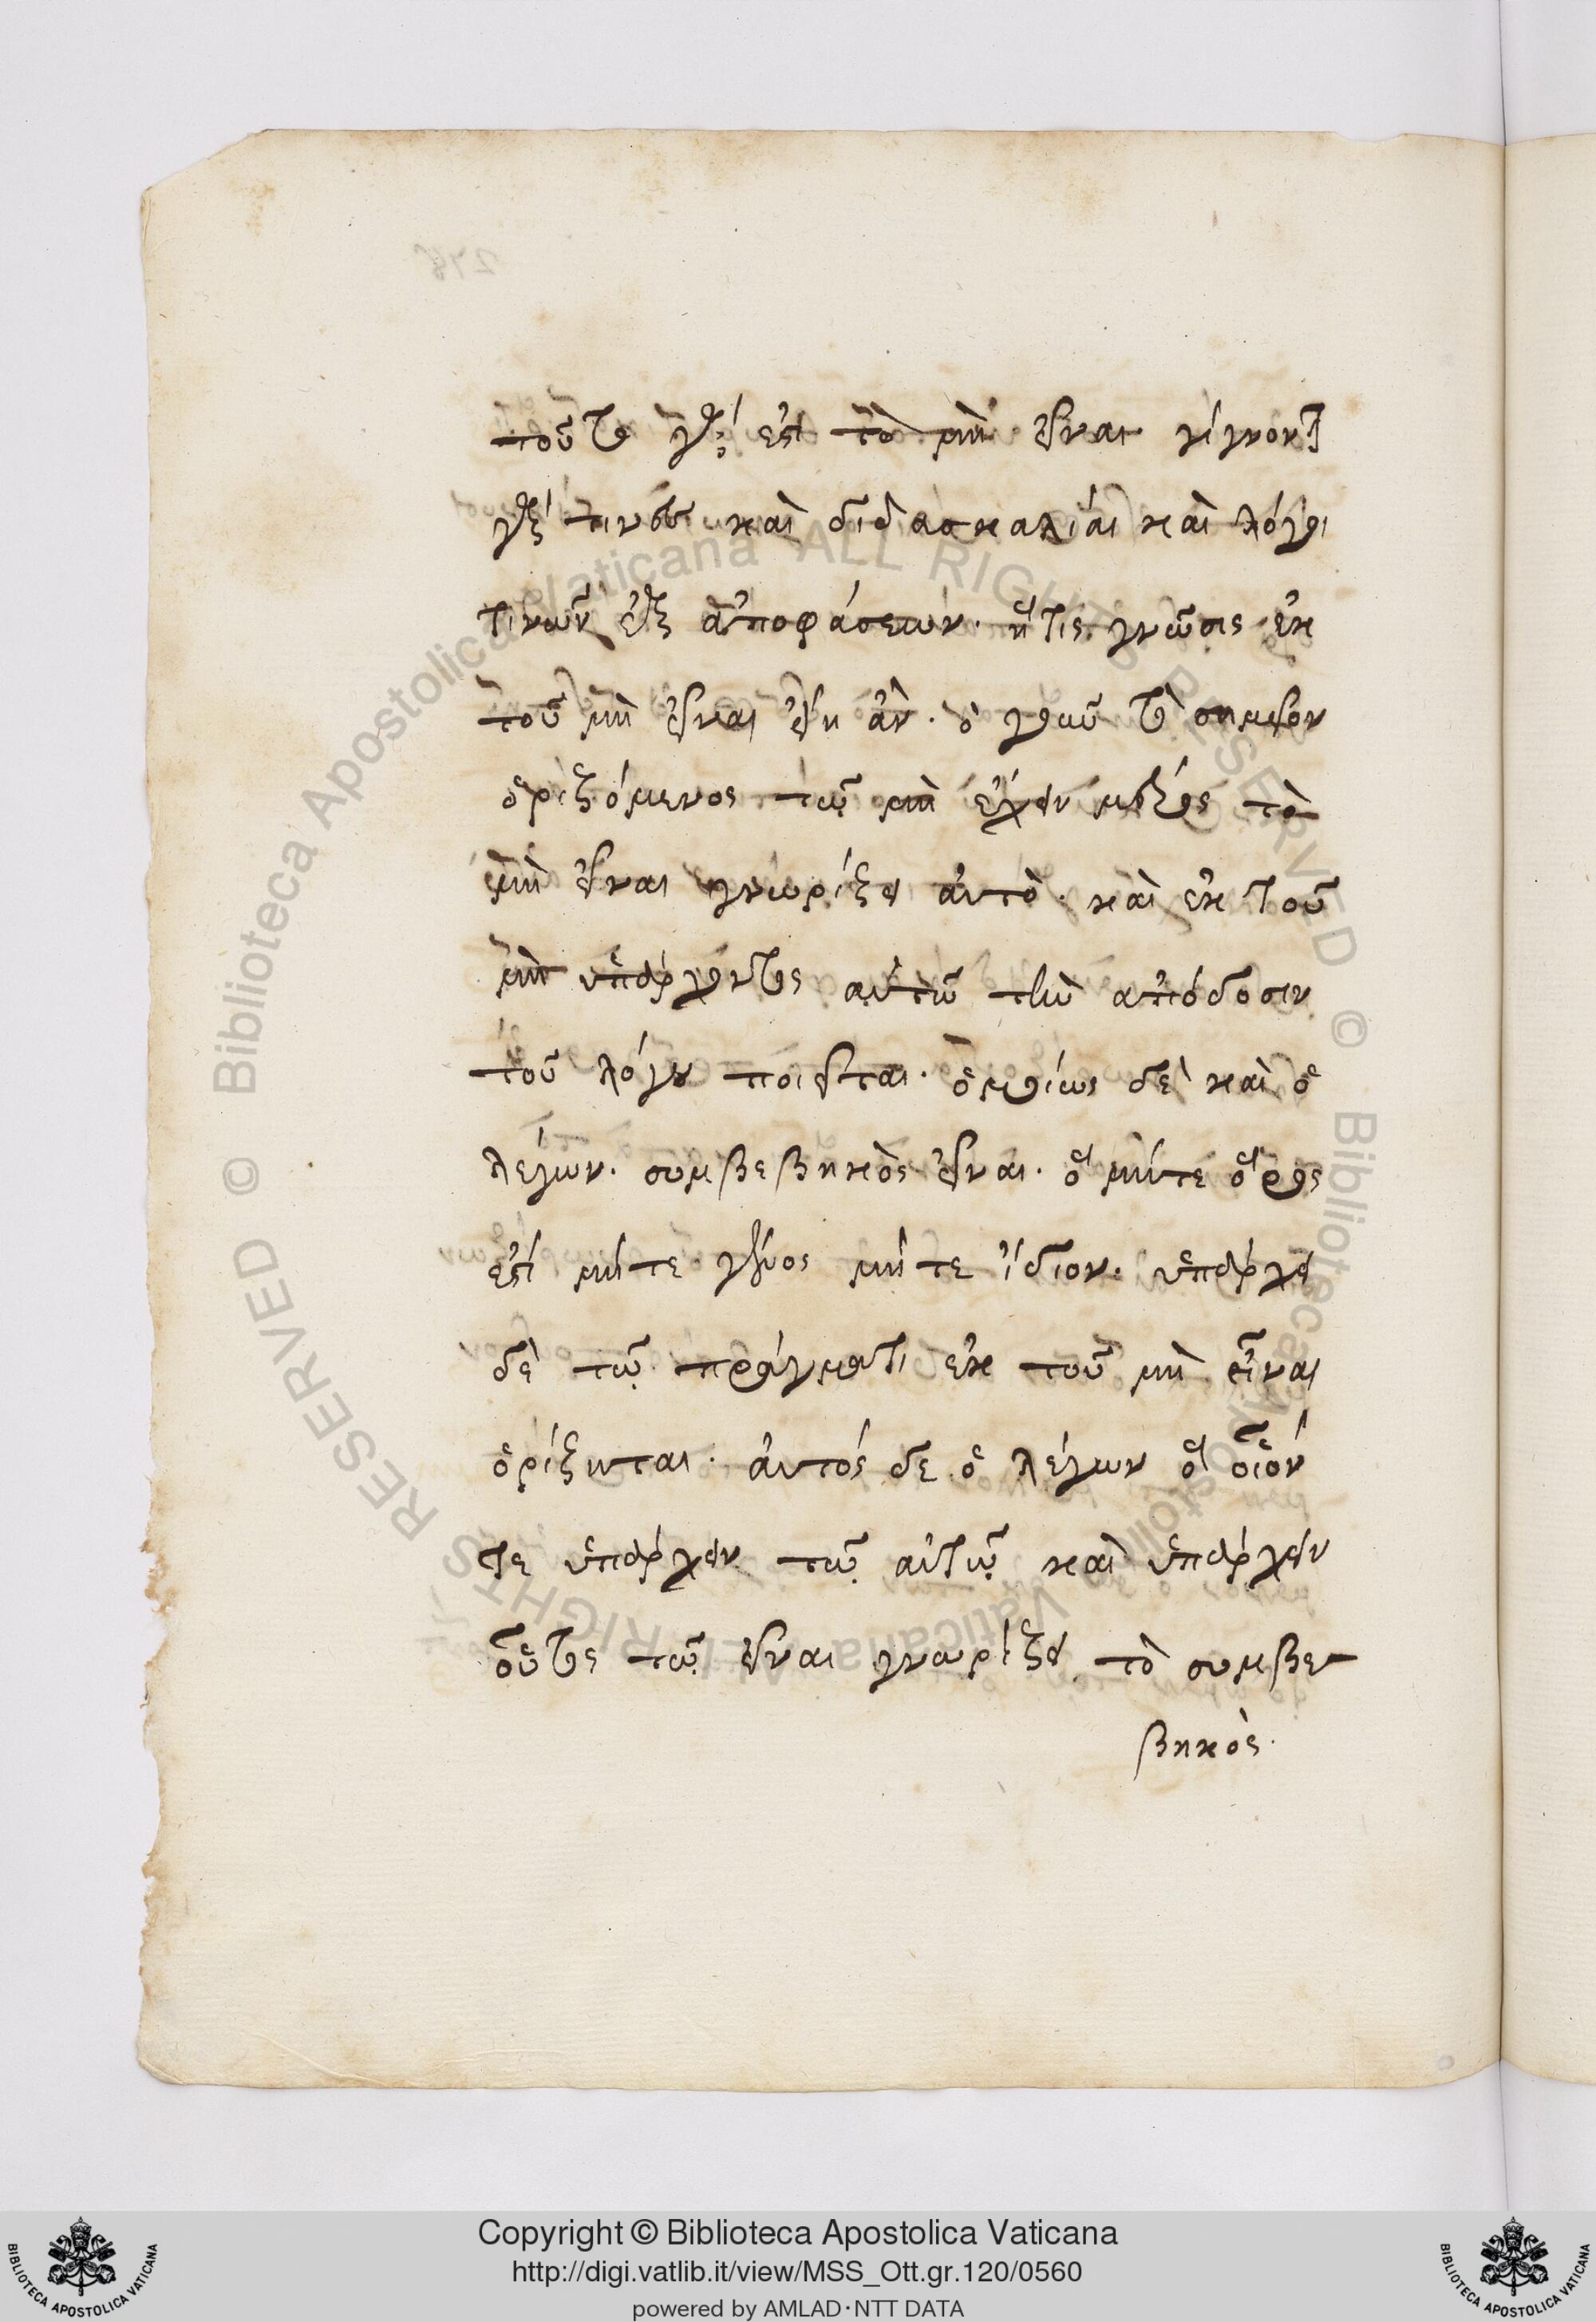 τοῦτο γάρ ἐστι τὸ μὴ εἶναι γίγνονται
γάρ τινες καὶ διδασκαλίαι καὶ λόγοι
τινῶν ἐξ ἀποφάσεων. ἥτις γνῶσις ἐκ
τοῦ μὴ εἶναι εἴη ἂν. ὁ γοῦν τὸ σημεῖον
ὁριζόμενος τῷ μὴ ἔχειν μέρος τὸ
μὴ εἶναι γνωρίζει αὐτὸ. καὶ ἐκ τοῦ
μὴ ὑπάρχοντος αὐτῶ τὴν ἀπόδοσιν
τοῦ λόγου ποιεῖται. ὁμοίως δὲ καὶ ὁ
λέγων. συμβεβηκὸς εἶναι. ὃ μήτε ὅρος
ἐστί μήτε γένος μήτε ἴδιον. ὑπάρχει
δὲ τῷ πράγματι ἐκ τοῦ μὴ εἶναι
ὁρίζηται. αὐτός δε ὁ λέγων ὃ οἷόν
τε ὑπάρχειν τῷ αὐτῷ καὶ ὑπάρχειν
οὗτος τῷ εἶναι γνωρίζει τὸ συμβε-
βηκὸς.
Copyright © Biblioteca Apostolica Vaticana
http://digi.vatlib.it/view/MSS_Ott.gr.120/0560
powered by AMLAD·NTT DATA
BIBLIOTECA APOSTOLICA VATICANA
BIBLIOTECA APOSTOLICA VATICANA
© Biblioteca Apostolica Vaticana ALL RIGHTS RESERVED © Biblioteca Apostolica Vaticana ALL RIGHTS RESERVED